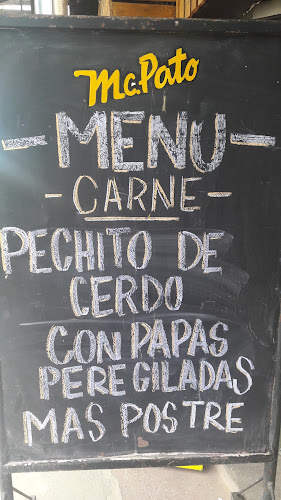 Mc.Pato
- MENU -
- CARNE -
PECHITO DE
CERDO
CON PAPAS
PEREGILADAS
MAS POSTRE